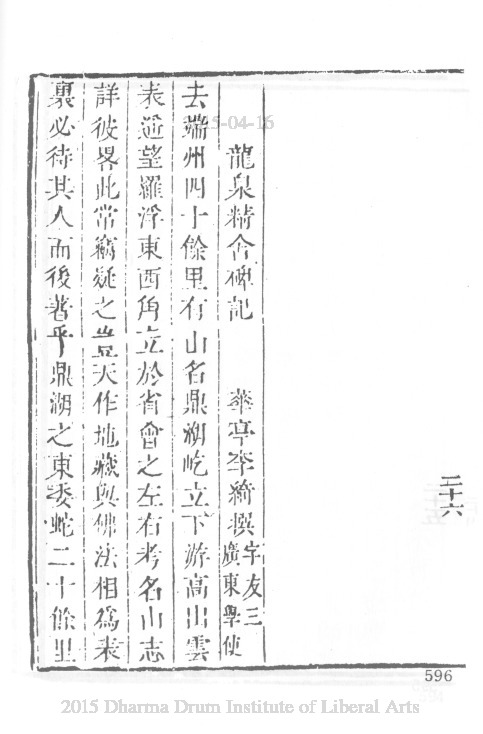 二十六
龍泉精舍碑記 華亭李綺撰 字友三 廣東學使
去端州四十餘里有山名鼎湖屹立下游高出雲
表遥望羅浮東西角立於省會之左右考名山志
詳彼畧此常竊疑之豈天作地藏與佛法相為表
裏必待其人而後著乎鼎湖之東委蛇二十餘里
596
2015-04-16
2015 Dharma Drum Institute of Liberal Arts